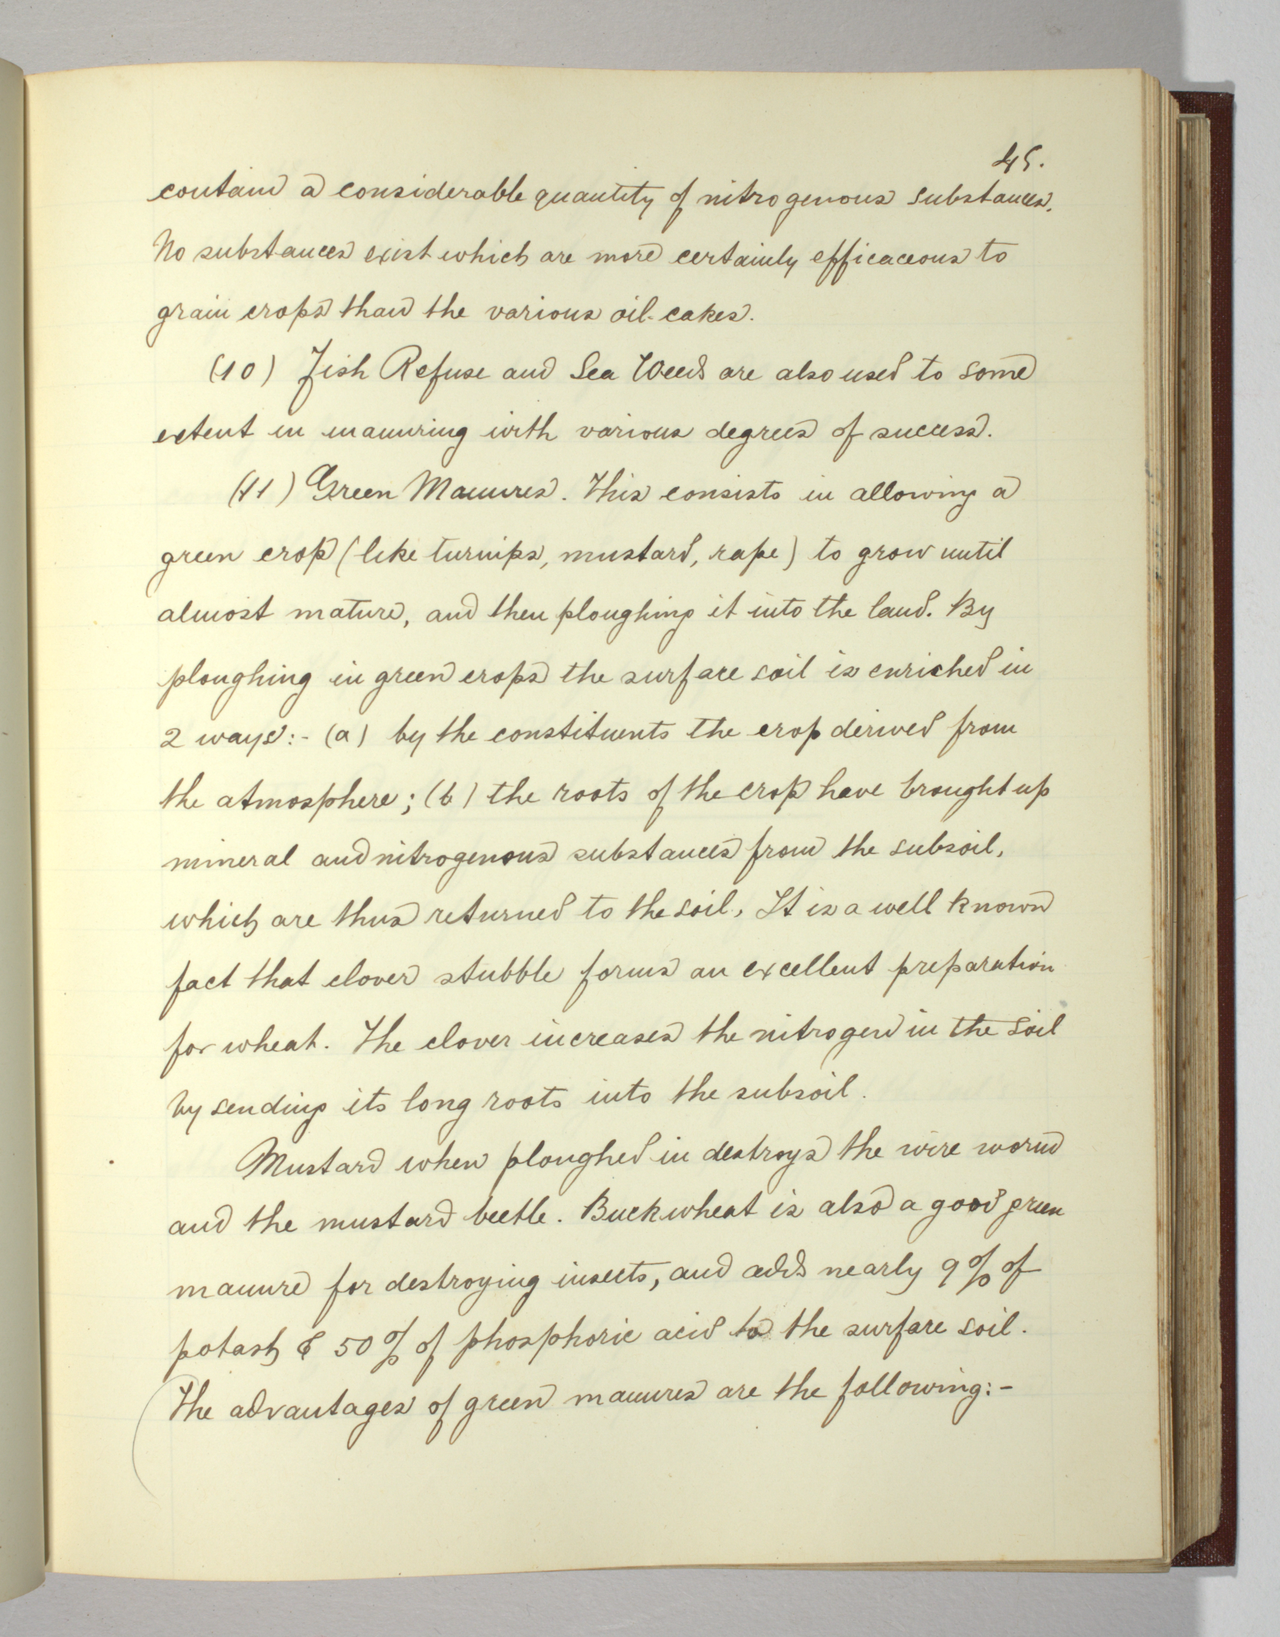 45.
contain a considerable quantity of nitrogenous substances.
No substances exist which are more certainly efficaceous to
grain crops than the various oil-cakes.
(10) Fish Refuse and Sea Weeds are also used to some
extent in manuring with various degrees of success.
(11) Green Manures. This consists in allowing a
green crop (like turnips, mustard, rape) to grow until
almost mature, and then ploughing it into the land. By
ploughing in green crops the surface soil is enriched in
2 ways:- (a) by the constituents the crop derived from
the atmosphere; (b) the roots of the crop have brought up
mineral and nitrogenous substances from the subsoil,
which are thus returned to the soil. It is a well known
fact that clover stubble forms an excellent preparation
for wheat. The clover increases the nitrogen in the soil
by sending its long roots into the subsoil.
Mustard when ploughed in destroys the wire worm
and the mustard beetle. Buckwheat is also a good green
manure for destroying insects, and adds nearly 9% of
potash & 50% of phosphoric acid to the surface soil.
The advantages of green manures are the following:-